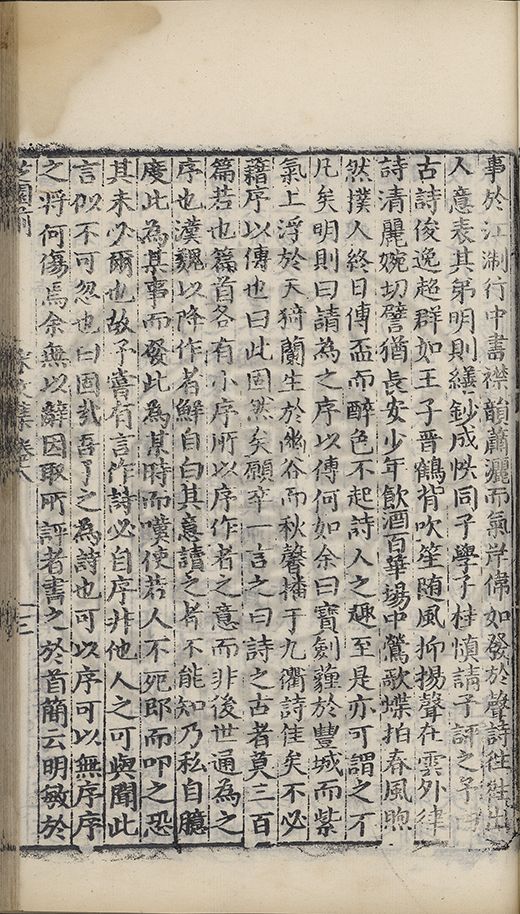 事於江淛行中書襟韻蕭灑而氣岸偉如發於聲詩往往出
人意表其弟明則繕鈔成帙同子學子桂慎請予評之予
古詩俊逸超群如王子晉鶴背吹笙随風抑揚聲在雲外律
詩清麗婉切譬猶長安少年飲酒百華場中鶯歌蝶拍春風煦
然撲人終日傳盃而醉色不起詩人之趣至是亦可謂之不
凡矣明則曰請為之序以傳何如余曰寶劔薶於豐城而紫
氣上浮於天猗蘭生於幽谷而秋馨播于九衢詩佳矣不必
藉序以傳也曰此固然矣願卒一言之曰詩之古者莫三百
篇若也篇首各有小序所以序作者之意而非後世通為之
序也漢魏以降作者鮮自白其意讀之者不能知乃私自臆
度此為某事而發此為某時而嘆使若人不死即而叩之恐
其未必爾也故予嘗有言作詩必自序非他人之可與聞此
言似不可忽也曰固哉吾子之為詩也可以序可以無序序
之將何傷焉余無以辭因取所評者書之於首簡云明敏於